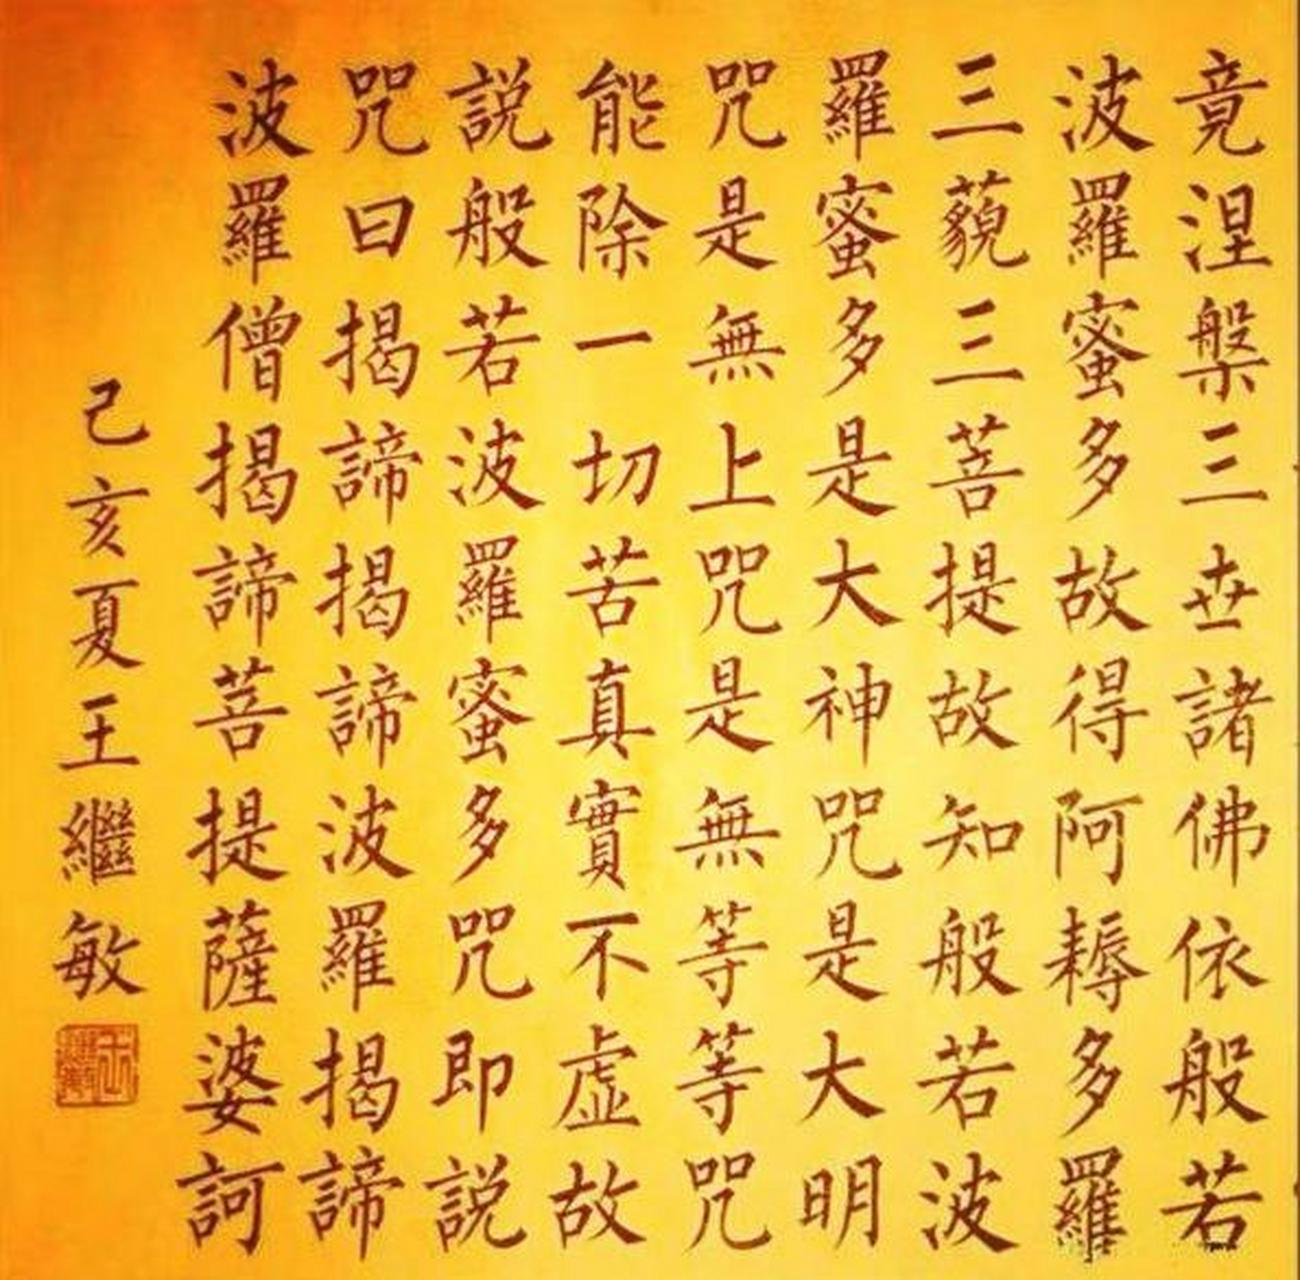 竟涅槃三世諸佛依般若
波羅蜜多故得阿耨多羅
三藐三菩提故知般若波
羅蜜多是大神咒是大明
咒是無上咒是無等等咒
能除一切苦真實不虛故
説般若波羅蜜多咒即説
咒曰揭諦揭諦波羅揭諦
波羅僧揭諦菩提薩婆訶
己亥夏王繼敏